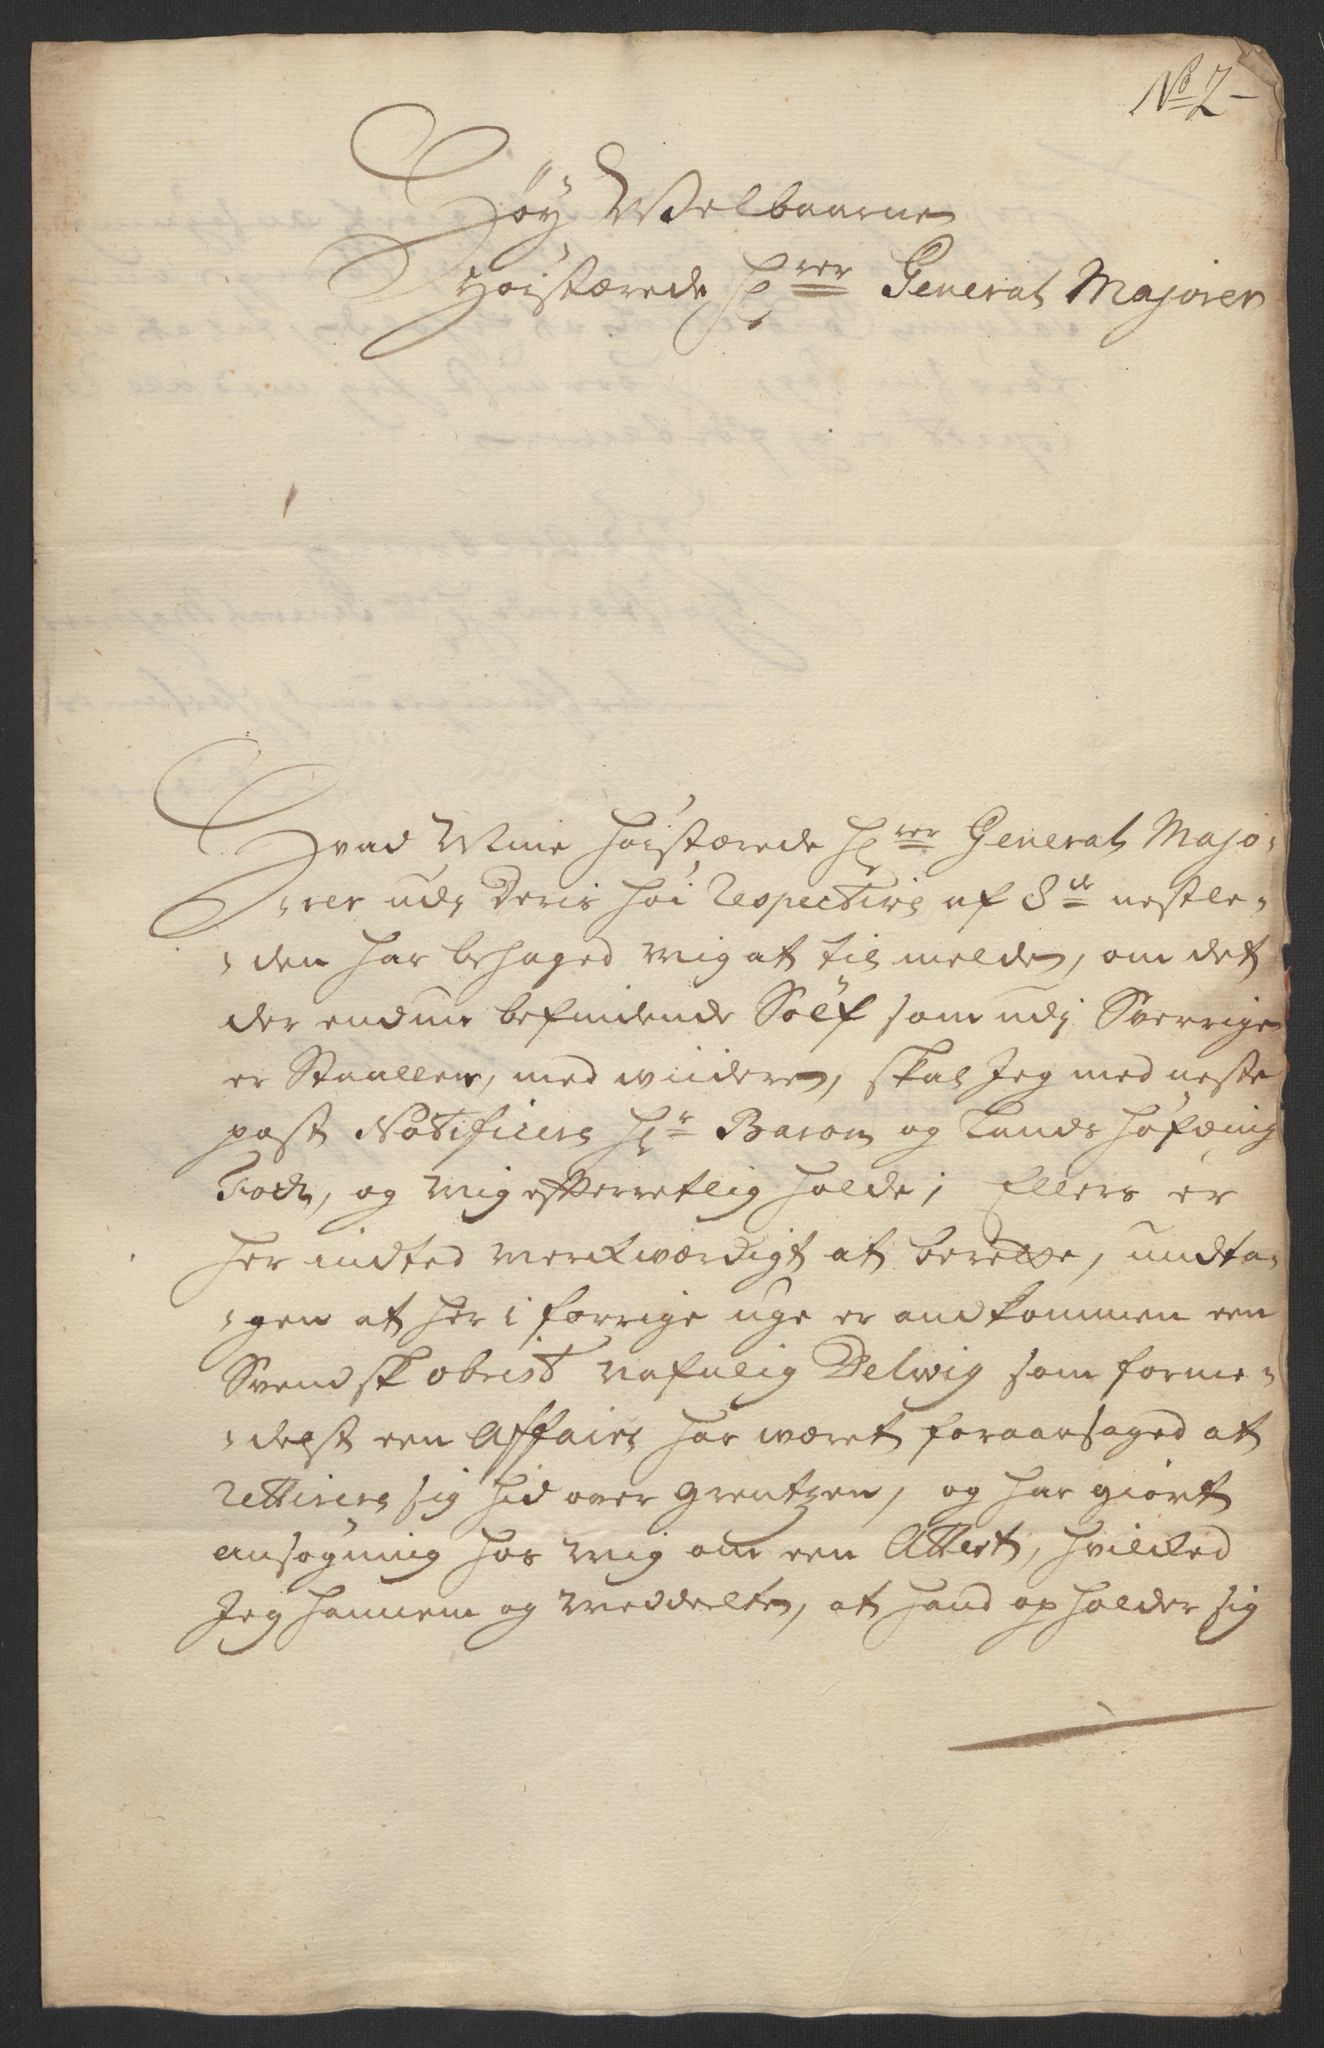 No 2
Höy Welbaarne
Höistærede Hrer General Majorer
Hvad Mine höistærede Hrer General Majo-
-rer udj Deris höi Respective af 8de nestle-
-den har behaged mig at til melde, om det
der endnu befindende Sölf som udj Sverrige
er Staallen, med widere, skal Jeg med neste
post Notificere Hr Baron og Lands höfding
og mig efterretlig holde; Ellers er
her indted merkværdigt at berette, undta-
-gen at her i forrige uge er andkommen een
Svendsk obrist nafnlig Delwig som forme-
-delst een Affaire har været foraarsaged at
rettirere sig hid over grentzen, og har giört
ansögning hos mig om een Attest, hvilked
Jeg hannem og meddelte, at hand opholder sig